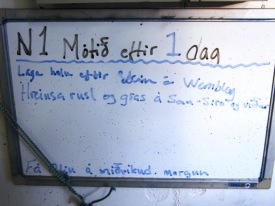 N1 Mótið eftir 1 dag
Laga holu eftir á Wembley
Hreinsa rusl og gras á San-Siro og
Fá á miðvikud. morgun